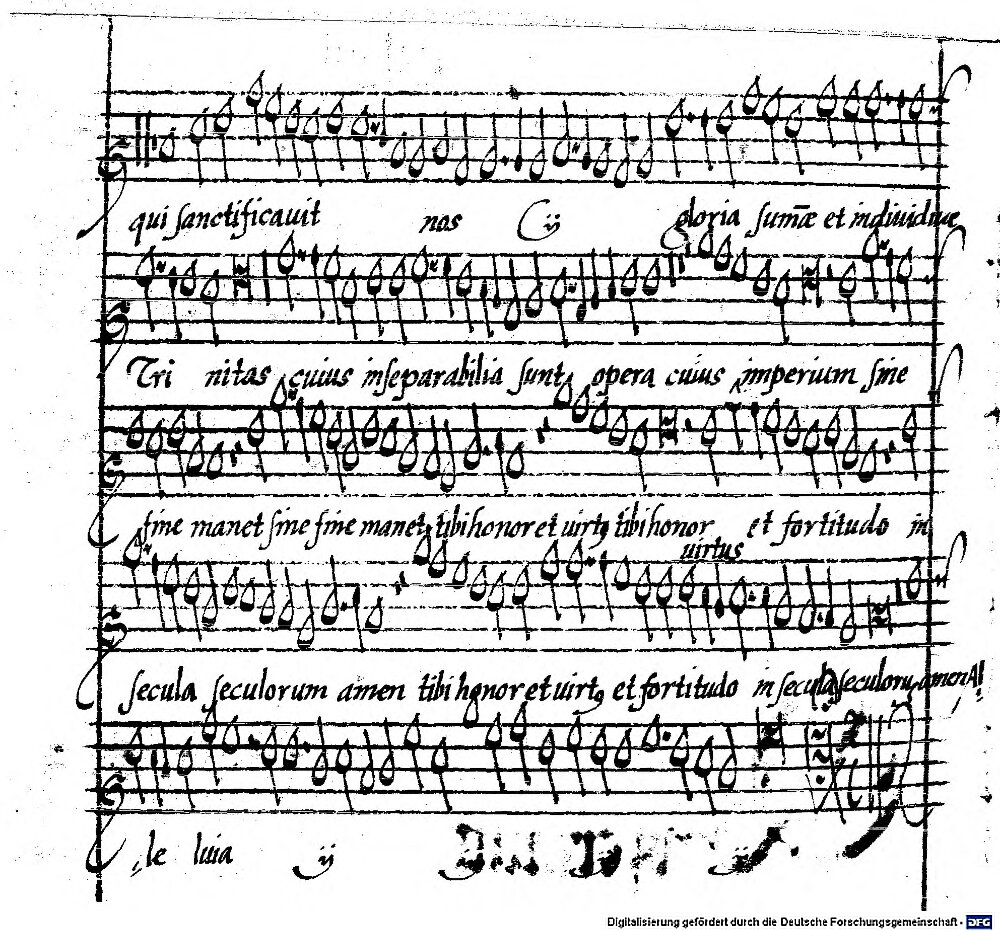 qui sanctificauit nos ij gloria sum̄æ et indiuiduæ
Tri nitas cuius inseparabilia sunt opera cuius imperium sine
fine manet sine fine manet tibi honor et uirtꝯ tibi honor et fortitudo in
uirtus
secula seculorum amen tibi honor et uirtꝯ et fortitudo in secula seculorũ amen Al
le luia ij
Digitalisierung gefördert durch die Deutsche Forschungsgemeinschaft - DFG